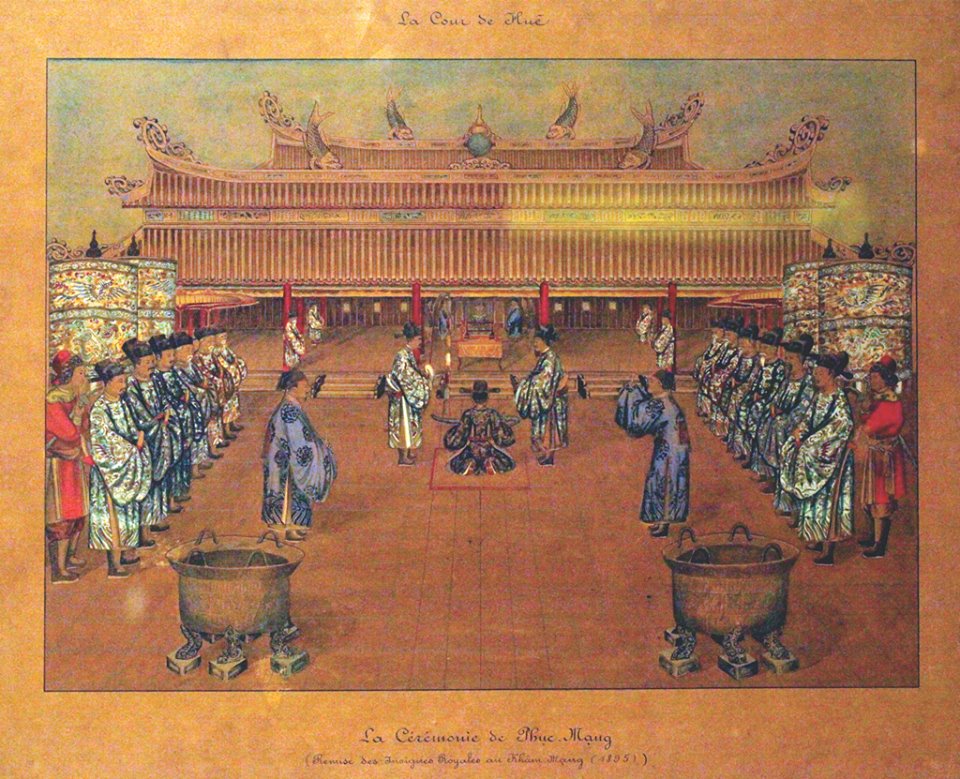 La Cour de Huê
La Cérémonie de Phuc-Mạng
(Remise des Insignes Royales au Khâm Mạng (1895))